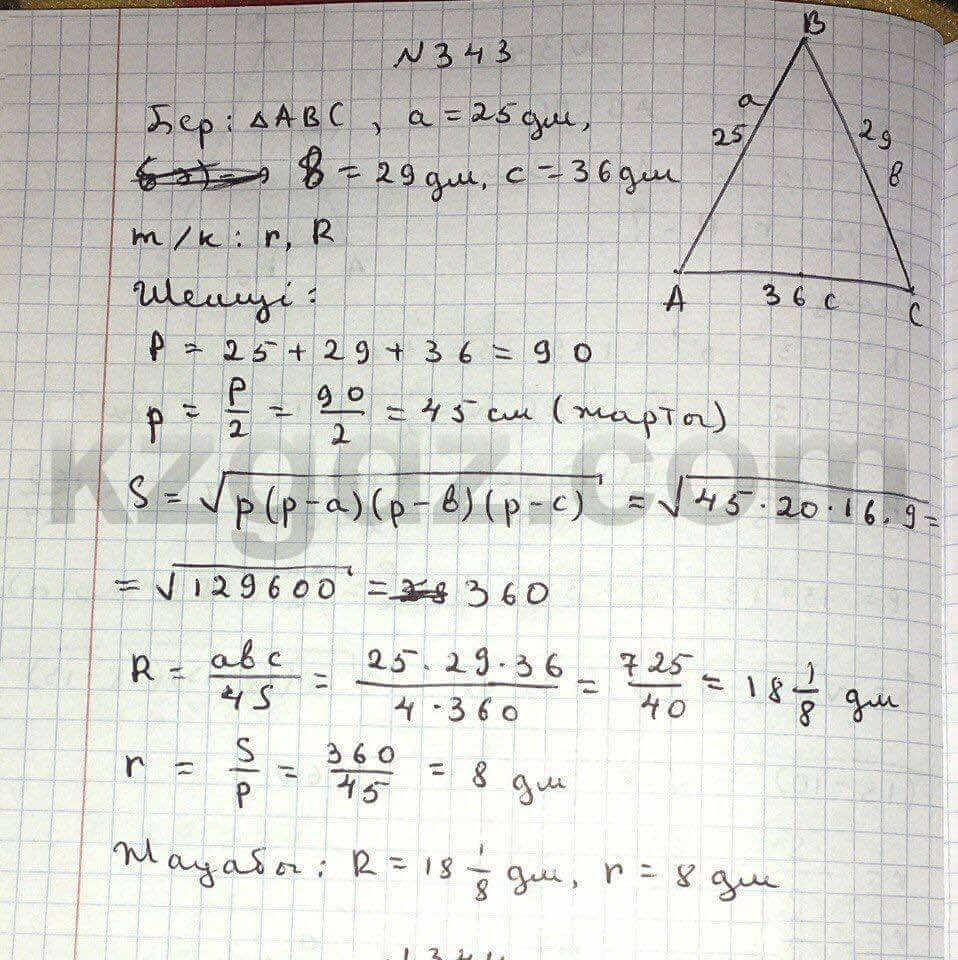 N 343
Бер: ΔABC, a = 25 дм,
в = 29 дм, c = 36 дм
т/к: r, R
Шешуі:
P = 25 + 29 + 36 = 90
p = P/2 = 90/2 = 45 см (жарты)
S = √(p(p-a)(p-в)(p-c)) = √(45·20·16·9) =
= √129600 = 360
R = abc/4S = 25·29·36/4·360 = 725/40 = 18 1/8 дм
r = S/p = 360/45 = 8 дм
Жауабы: R = 18 1/8 дм, r = 8 дм
B
a
25
29
в
A
36 c
C
kzgdz.com